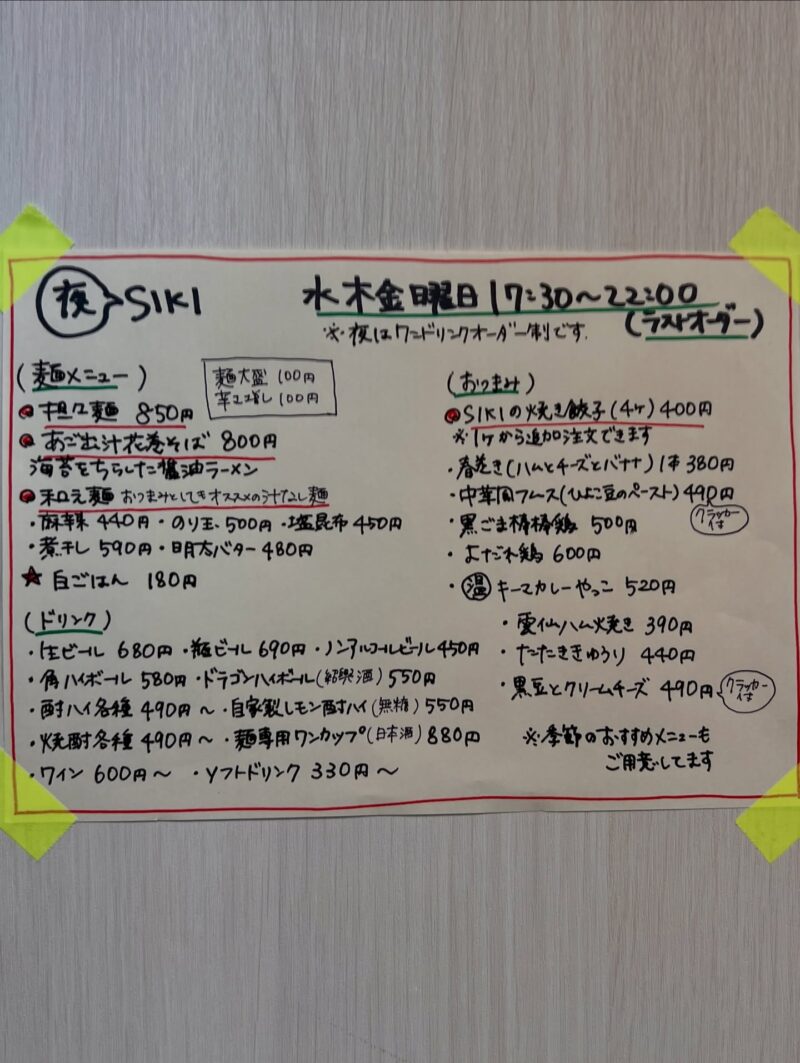 夜 SIKI
水木金日曜日 17:30～22:00
(ラストオーダー)
※夜はワンドリンクオーダー制です.
(麺メニュー)
麺大盛 100円
辛さ増し 100円
担々麺 850円
あごだし汁花巻そば 800円
海苔をちらした醤油ラーメン
和え麺 おつまみとしてもオススメの汁なし麺
・麻辣 440円・のり玉 500円・塩昆布 450円
・煮干し 590円・明太バター 480円
★ 白ごはん 180円
(ドリンク)
・生ビール 680円・瓶ビール 690円・ノンアルコールビール 450円
・角ハイボール 580円・ドラゴンハイボール(紹興酒) 550円
・酎ハイ各種 490円～・自家製レモン酎ハイ(無糖) 550円
・焼酎各種 490円～・麺専用ワンカップ(日本酒) 880円
・ワイン 600円～ ・ソフトドリンク 330円～
(おつまみ)
SIKIの焼き餃子(4ヶ) 400円
※1ヶから追加注文できます
・春巻き(ハムとチーズとバナナ) 1本 380円
・中華風フムス(ひよこ豆のペースト) 490円
クラッカー付
・黒ごま棒棒鶏 500円
・よだれ鶏 600円
・温 キーマカレーやっこ 520円
・雲仙ハム焼き 390円
・たたききゅうり 440円
・黒豆とクリームチーズ 490円 クラッカー付
※季節のおすすめメニューも
ご用意してます